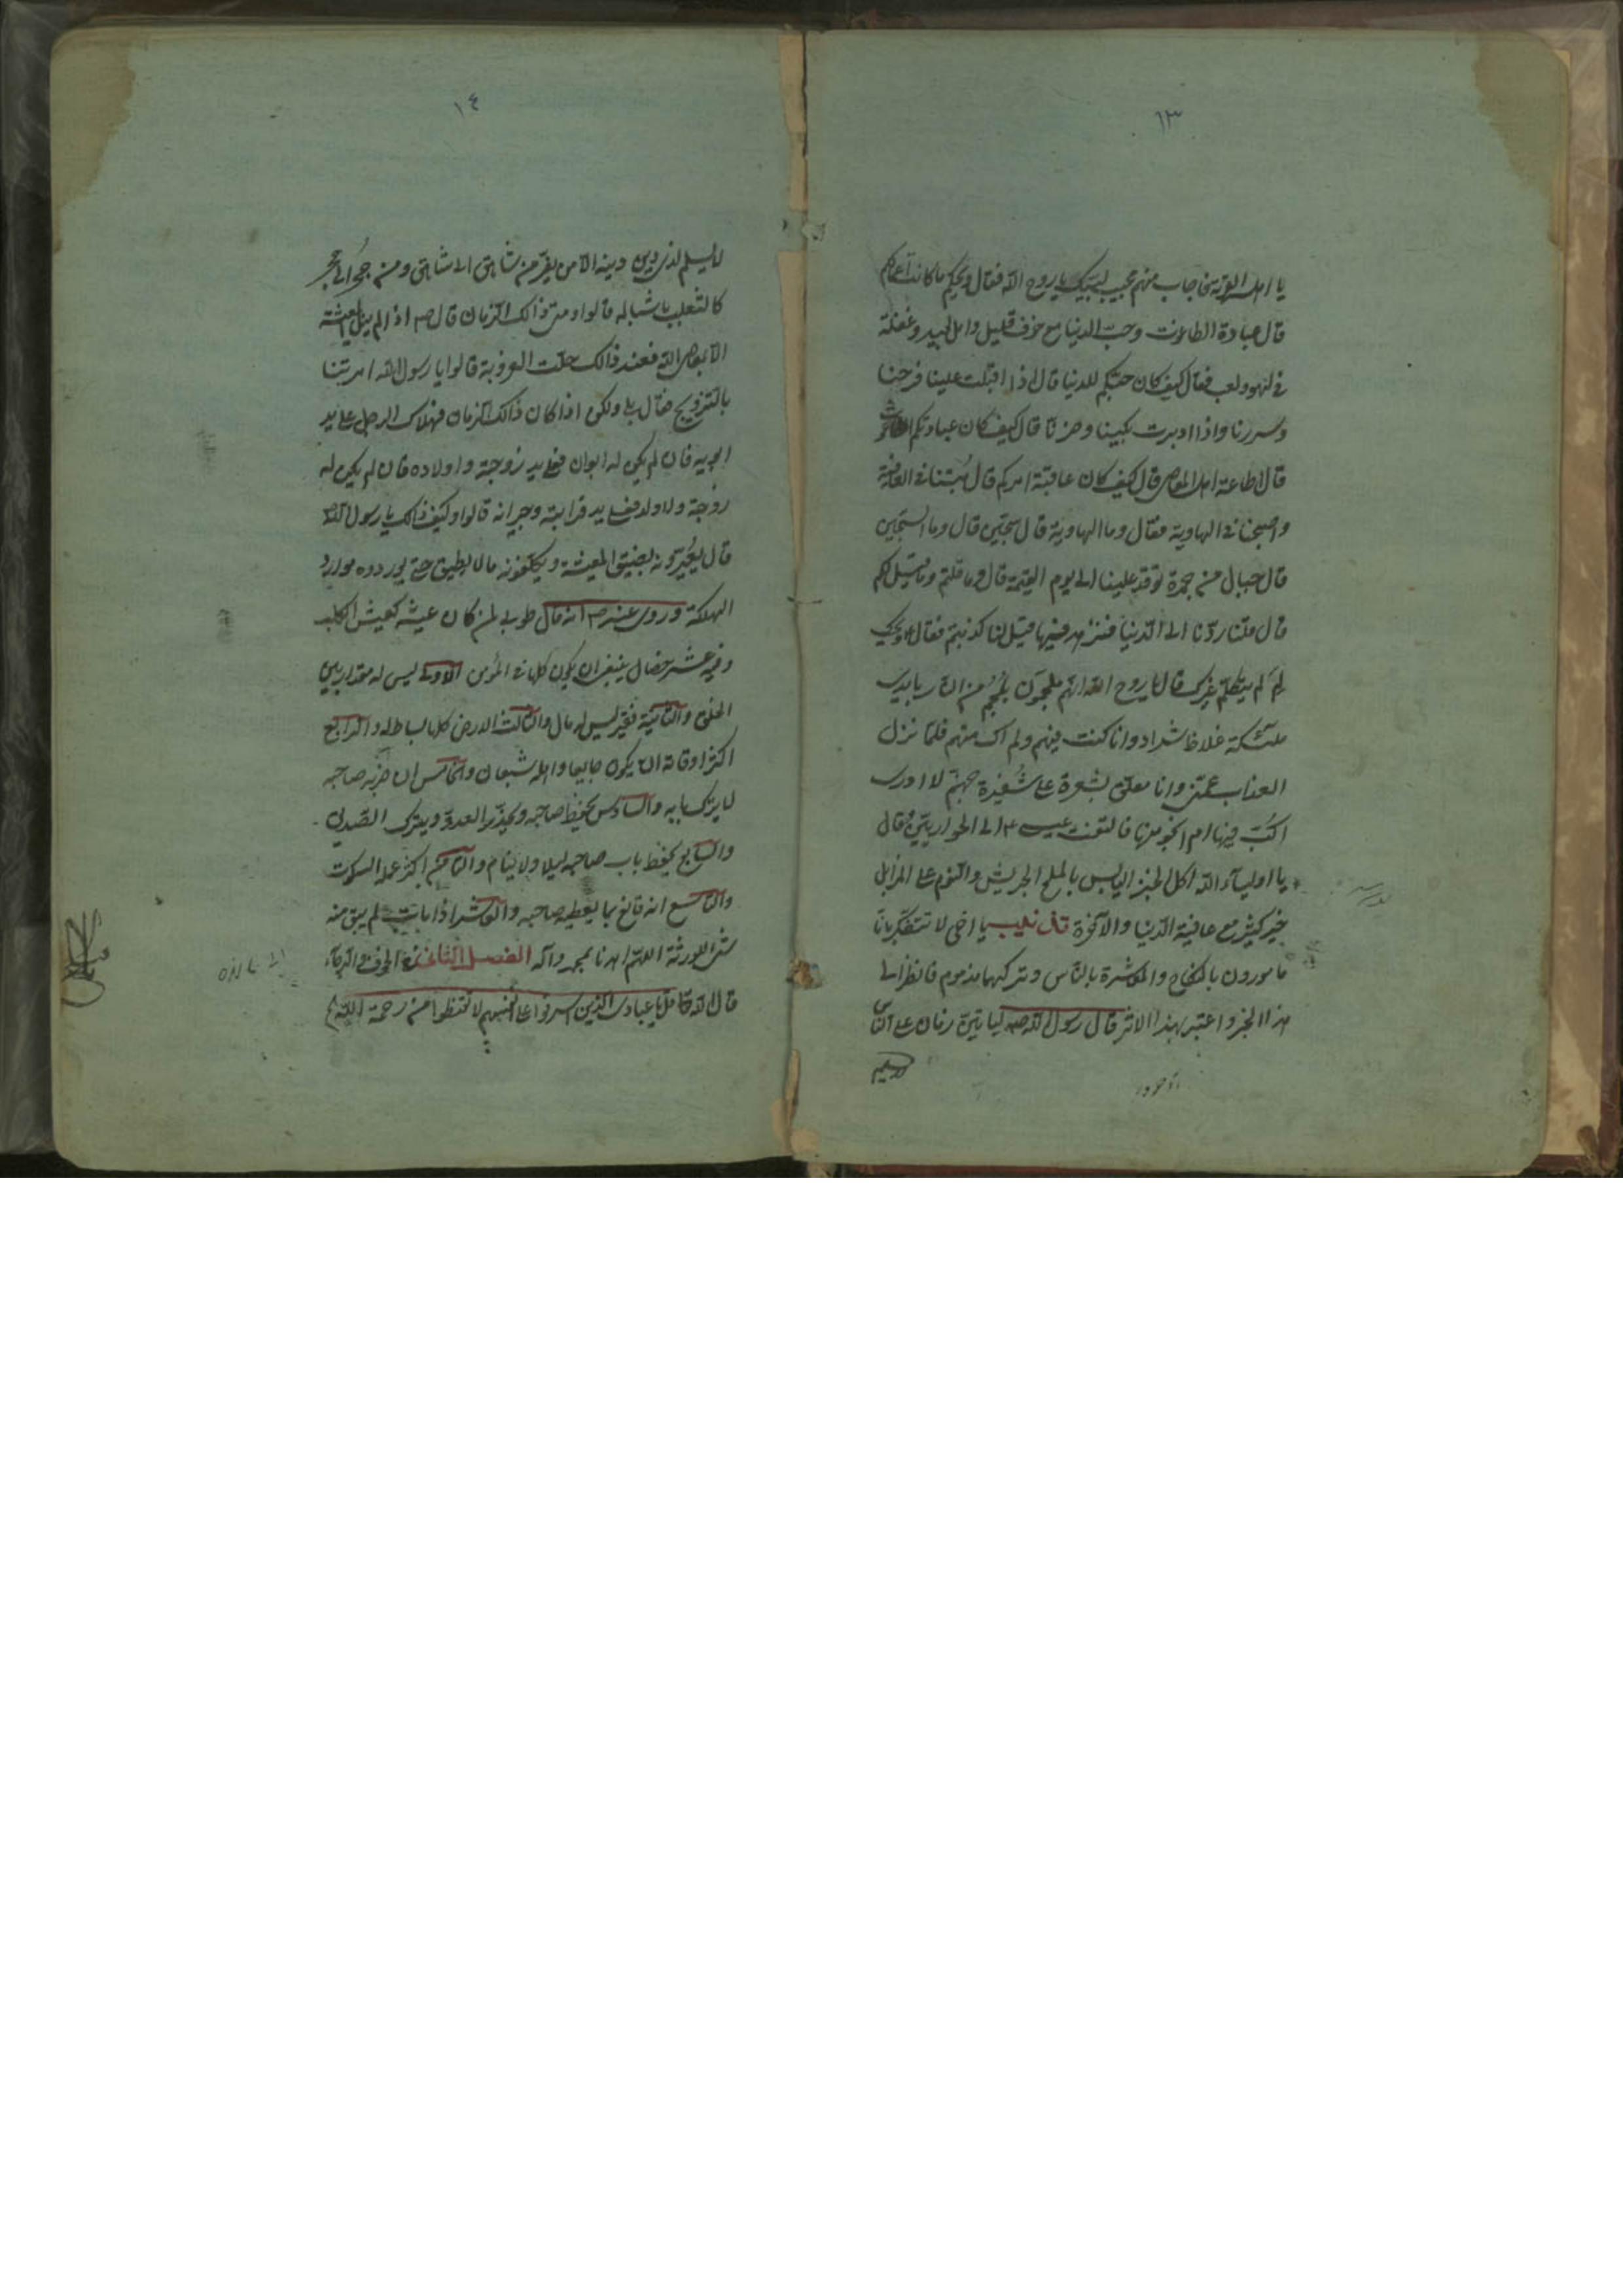 ١٣
يا اهل القرية فاجاب منهم مجيب لبيك يا روح الله فقال ويحكم ما كانت اعمالكم
قال عبادة الطاغوت وحب الدنيا مع خوف قليل وامل بعيد وغفلة
في لهو ولعب فقال كيف كان حبكم للدنيا قال اذا اقبلت علينا فرحنا
وسررنا واذا ادبرت بكينا وحزنا قال كيف كان عبادتكم الطاغوت
قال اطاعة اهل المعاصي قال كيف كان عاقبة امركم قال بتنا في العافية
واصبحنا في الهاوية فقال وما الهاوية قال سجين قال وما السجين
قال جبال من جمرة توقد علينا الى يوم القيمة قال وما قلتم وما قيل لكم
قال قلنا ردنا الى الدنيا فنزهد فيها قيل لنا كذبتم فقال ويحك
لم لم يتكلم غيرك قال يا روح الله انهم ملجمون بلجم من النار بايدي
ملئكة غلاظ شداد وانا كنت فيهم ولم اك منهم فلما نزل
العذاب عمني وانا معلق بشعرة على شفيرة جهنم لا ادري
اكب فيها ام انجو منها فالتفت عيسى ع الى الحواريين فقال
يا اولياء الله اكل الخبز اليابس بالملح الجريش والنوم على المزابل
خير كثير مع عافية الدنيا والاخرة يا اخى لا تتفكر بانا
مامورون بالنكاح والمعاشرة بالناس وتركهما مذموم فانظر الى
هذا الخبر واعتبر بهذا الاثر قال رسول الله ص لياتين زمان على الناس
١٤
لا يسلم لذي دين دينه الا من يفر من شاهق الى شاهق ومن جحر الى جحر
كالثعلب باشباله قالوا ومتى ذالك الزمان قال ص اذا لم ينل المعيشة
الا بمعاصي الله فعند ذالك حلت العزوبة قالوا يا رسول الله امرتنا
بالتزويج قال بلى ولكن اذا كان ذالك الزمان فهلاك الرجل على يد
ابويه فان لم يكن له ابوان فعلى يد زوجته واولاده فان لم يكن له
زوجة ولا ولد فعلى يد قرابته وجيرانه قالوا وكيف ذالك يا رسول الله
قال يعيرونه بضيق المعيشة ويكلفونه مالا يطيق حتى يوردوه موارد
الهلكة وروى عنه ص انه قال طوبى لمن كان عيشه كعيش الكلب
وفيه عشر خصال ينبغي ان يكون كلها في المؤمن الاولى ليس له مقدار بين
الخلق والثانية فقير ليس له مال والثالث الارض كلها بساط له والرابع
اكثر اوقاته ان يكون جايعا واهله شبعان والخامس ان ضربه صاحبه
لا يترك بابه والسادس يحفظ صاحبه ويحذر العدو ويترك الصديق
والسابع يحفظ باب صاحبه ليلا ولا ينام والثامن اكثر عمله السكوت
والتاسع انه قانع بما يعطيه صاحبه والعاشر اذا مات لم يبق منه
شئ للورثة اللهم اهدنا بمحمد وآله الفصل الثاني في الخوف والرجاء
قال الله تعالى يا عبادي الذين اسرفوا على انفسهم لا تقنطوا من رحمة الله